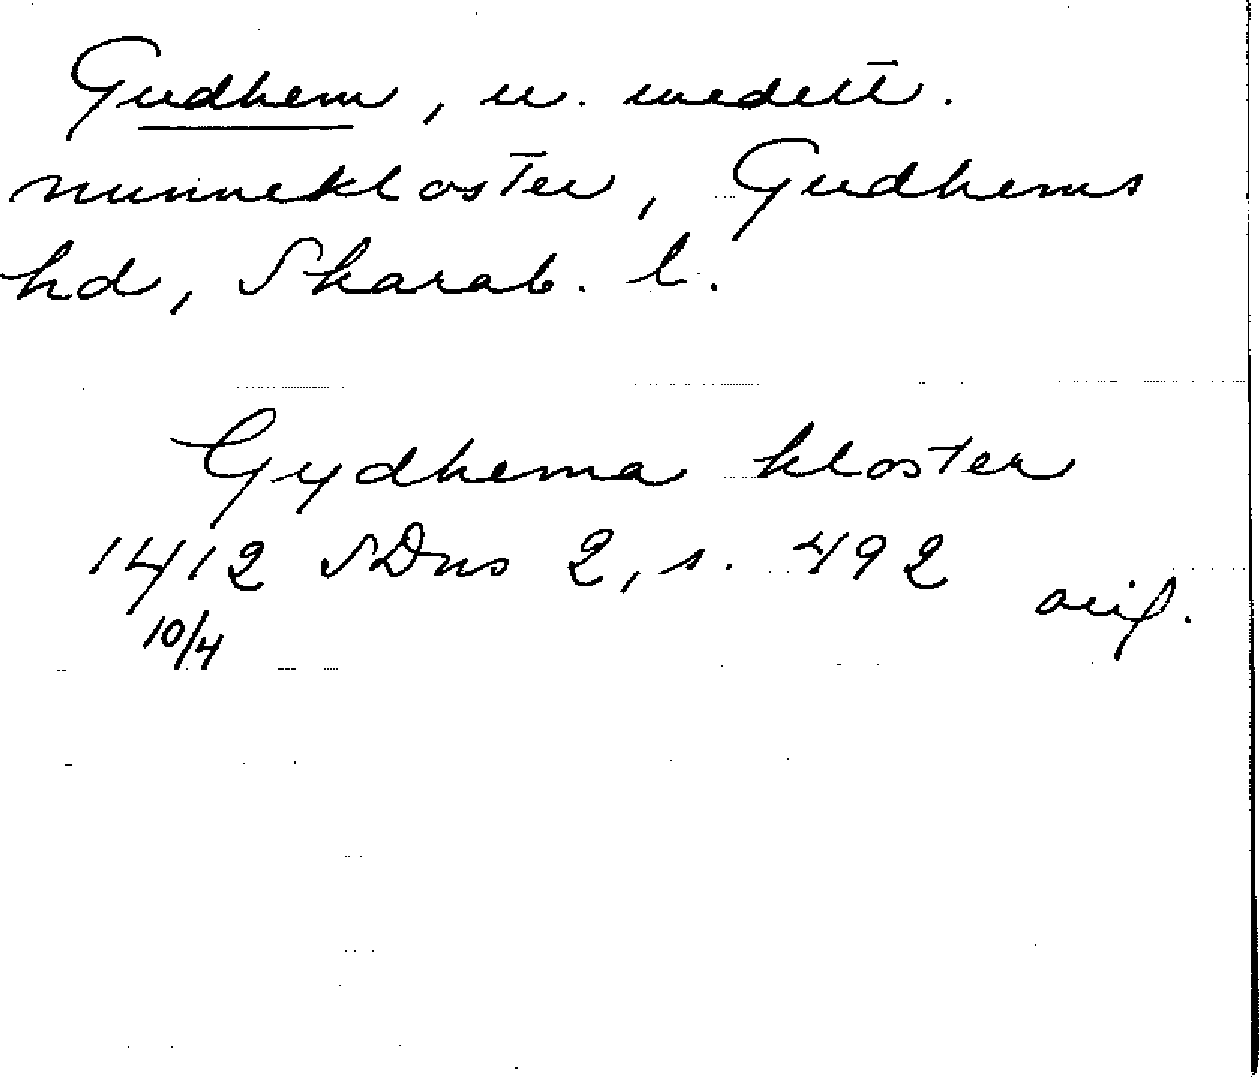 Gudhem, n. medelt.
nunnekloster, Gudhems
hd, Skarab. l.
Gydhema kloster
1412 SDns 2, s. 492
orig.
10/4